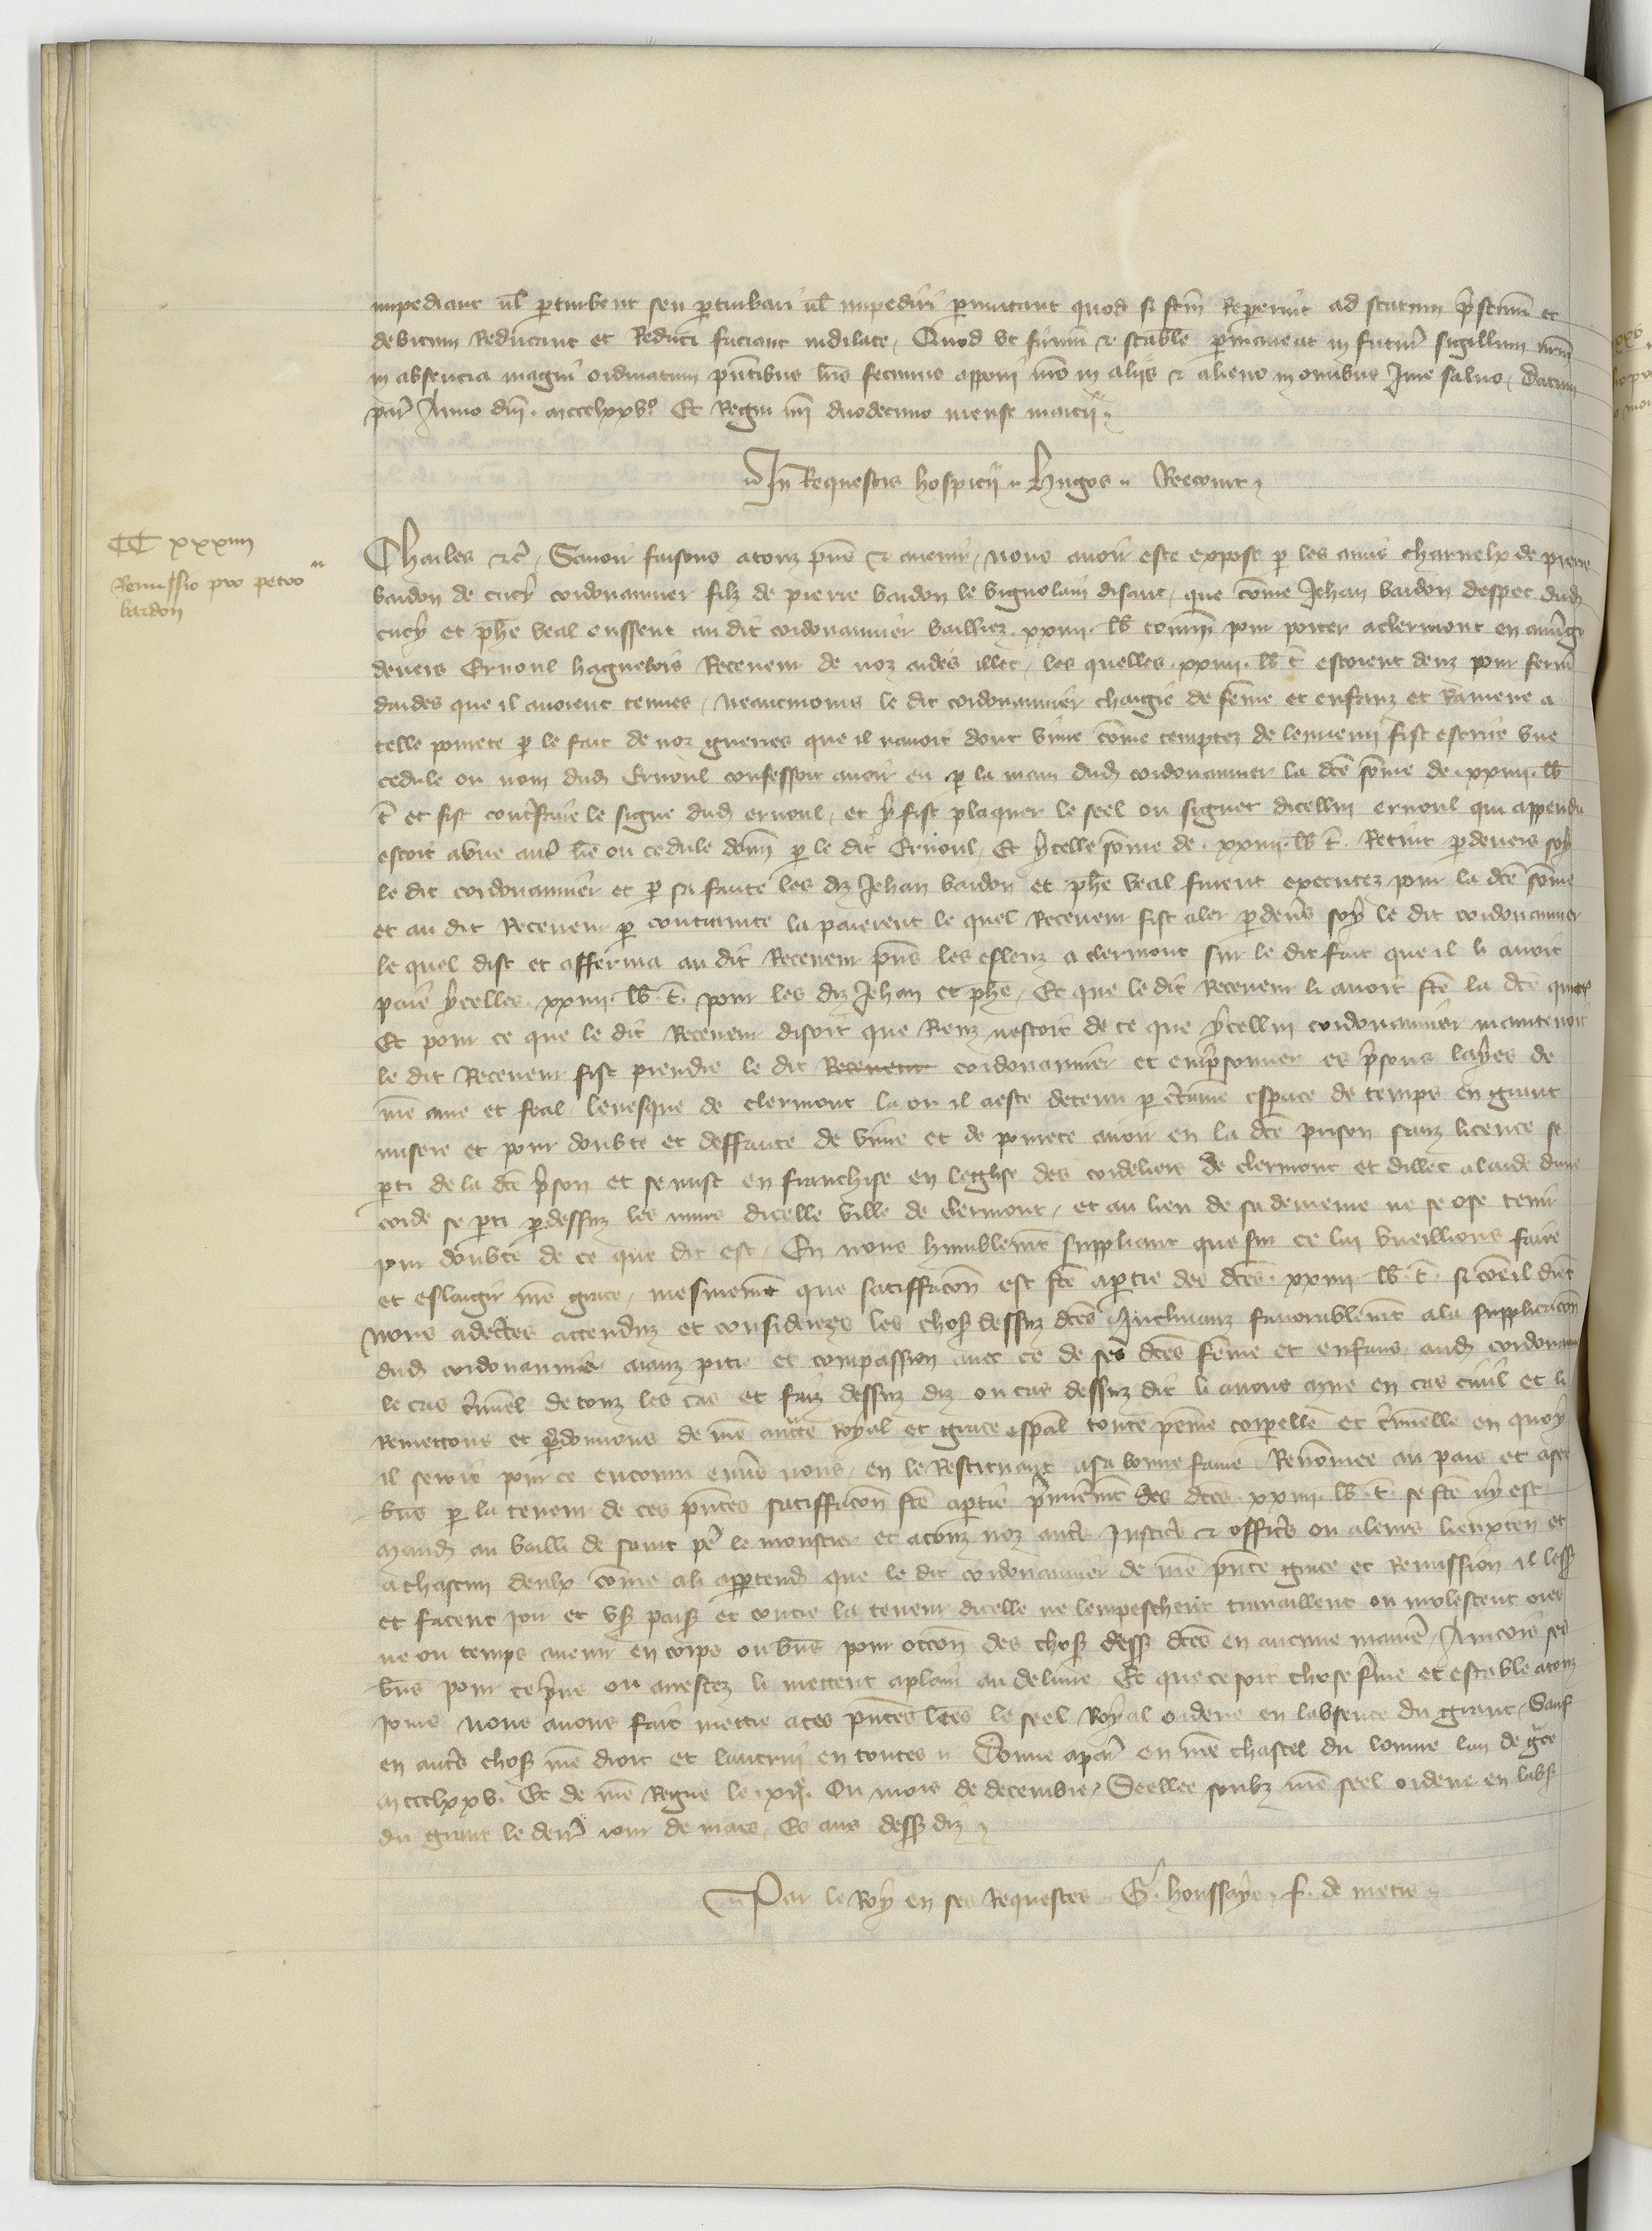 impediant vel perturbent seu perturbari vel impediri permittant quod si secus reperierint ad statum pristinum et
debitum reducant et reduci faciant indilate, Quod ut firmum et stabile permaneat in futurum sigillum nostrum
in absencia magni ordinatum presentibus litteris fecimus apponi nostro in aliis et alieno in omnibus Jure salvo, Datum
par Anno dni. mccclxxvo. Et Regni nri duodecimo mense marcii.
In Requestis hospicii. Hugos. Recourt
CC xxxiiii
Remissio pro petro
bardon
Charles etc, Savoir faisons a touz pns et avenir, nous avoir este expose p les amis charnelx de pierre
bardon de cucy cordouannier filz de pierre bardon le vignolain disant, que come Jehan bardon despet dud
cucy et phe veal eussent au dit cordouannier bailliez. xxiiii. lb tourn pour porter a clermont en auvgn
devers Ernoul haguenois Receveur de noz aides illec, les quelles. xxiiii. lb t estoient deuz pour ferme
daides que il avoient tenues, neantmoins le dit cordouannier chargie de feme et enfanz et Ramene a
telle povrete p le fait de noz guerres que il navoit dont vivre come temptez de lennemi fist escrire une
cedule ou nom dud Ernoul confessoit avoir eu p la main dud cordouannier la dce some de. xxiiii. lb
t et fist contrefaire le signe dud ernoul, et y fist plaquer le seel ou signet dicellui ernoul qui appendu
estoit a une autre lre ou cedule donn p le dit Ernoul, Et ycelle some de. xxiiii. lb t. Retint p devers soy
le dit cordouannier et p sa faute les diz Jehan bardon et phe veal furent executez pour la dce some
et au dit Receveur p contrainte la paierent le quel Receveur fist aler p devs soy le dit cordouannier
le quel dist et afferma au dit Receveur pns les esleuz a clermont sur le dit fait que il li avoit
paie ycelles. xxiiii. lb. t. pour les diz Jehan et phe, Et que le dit Receveur li avoit fce la dce quict
Et pour ce que le dit Receveur disoit que Riens nestoit de ce que ycellui cordouannier maintenoit
le dit Receveur fist prendre le dit Receveur cordouannier et emprisonner es prisons layes de
nre ame et feal levesque de clermont la ou il a este detenu p certaine espace de temps en grant
misere et pour doubte et deffaute de vivre et de povrete avoir en la dce prison sanz licence se
pti de la dce prison et se mist en franchise en leglise des cordeliers de clermont et dillec a laide dune
corde se pti p dessuz les murs dicelle ville de clermont, et au lieu de sa demeure ne se ose tenir
pour doubte de ce que dit est, En nous humblemt suppliant que sur ce lui vueillions faire
et eslargir nre grace, mesmemt que satiffacon est fce a ptie des dces. xxiiii. lb. t. si come il dient
Nous adectes attenduz et considerees les choses dessuz dces Inclinanz favorablemt a la supplicacon
dud cordouannier aianz pitie et compassion avec ce de ses dces feme et enfans, aud cordouann
le cas criminel de touz les cas et faiz dessuz diz ou cas dessuz dit li avons mue en cas civil et li
Remettons et pdonnons de nre aucte Royal et grace espal toute peine corpelle et criminelle en quoy
il seroit pour ce encouru envs nous, en le Restituant a sa bonne fame Renomee au pais et a ses
bns p la teneur de ces pntes satiffacon fce a ptie premieremt des dces. xxiiii. lb. t. se fce ny est
Mand au bailli de saint pe le monstier et a touz noz autres Justic et officrs ou a leurs lieuxten et
a chascun deulx come a li apptend que le dit cordouannier de nre pnte grace et Remission il less
et facent joir et user pais et contre la teneur dicelle ne lempeschent travaillent ou molestent ores
ne ou temps avenir en corps ou bns pour occon des choses dess dces en aucune manie, Aincois ses
bns pour ce pris ou arrestez li mettent a plain au delivre Et que ce soit chose ferme et estable a touz
jours Nous avons fait mettre a ces pntes lres le seel Royal ordene en labsence du grant, Sauf
en autres choses nre droit et lautrui en toutes. Donne a par en nre chastel du louvre lan de grace
mccclxxv. Et de nre Regne le xije. Ou mois de decembre, Seellee soubz nre seel ordene en labs
du grant le derr jour de mars, Es ans dess diz
Par le Roy en ses Requestes. G. houssaye. f. de metis